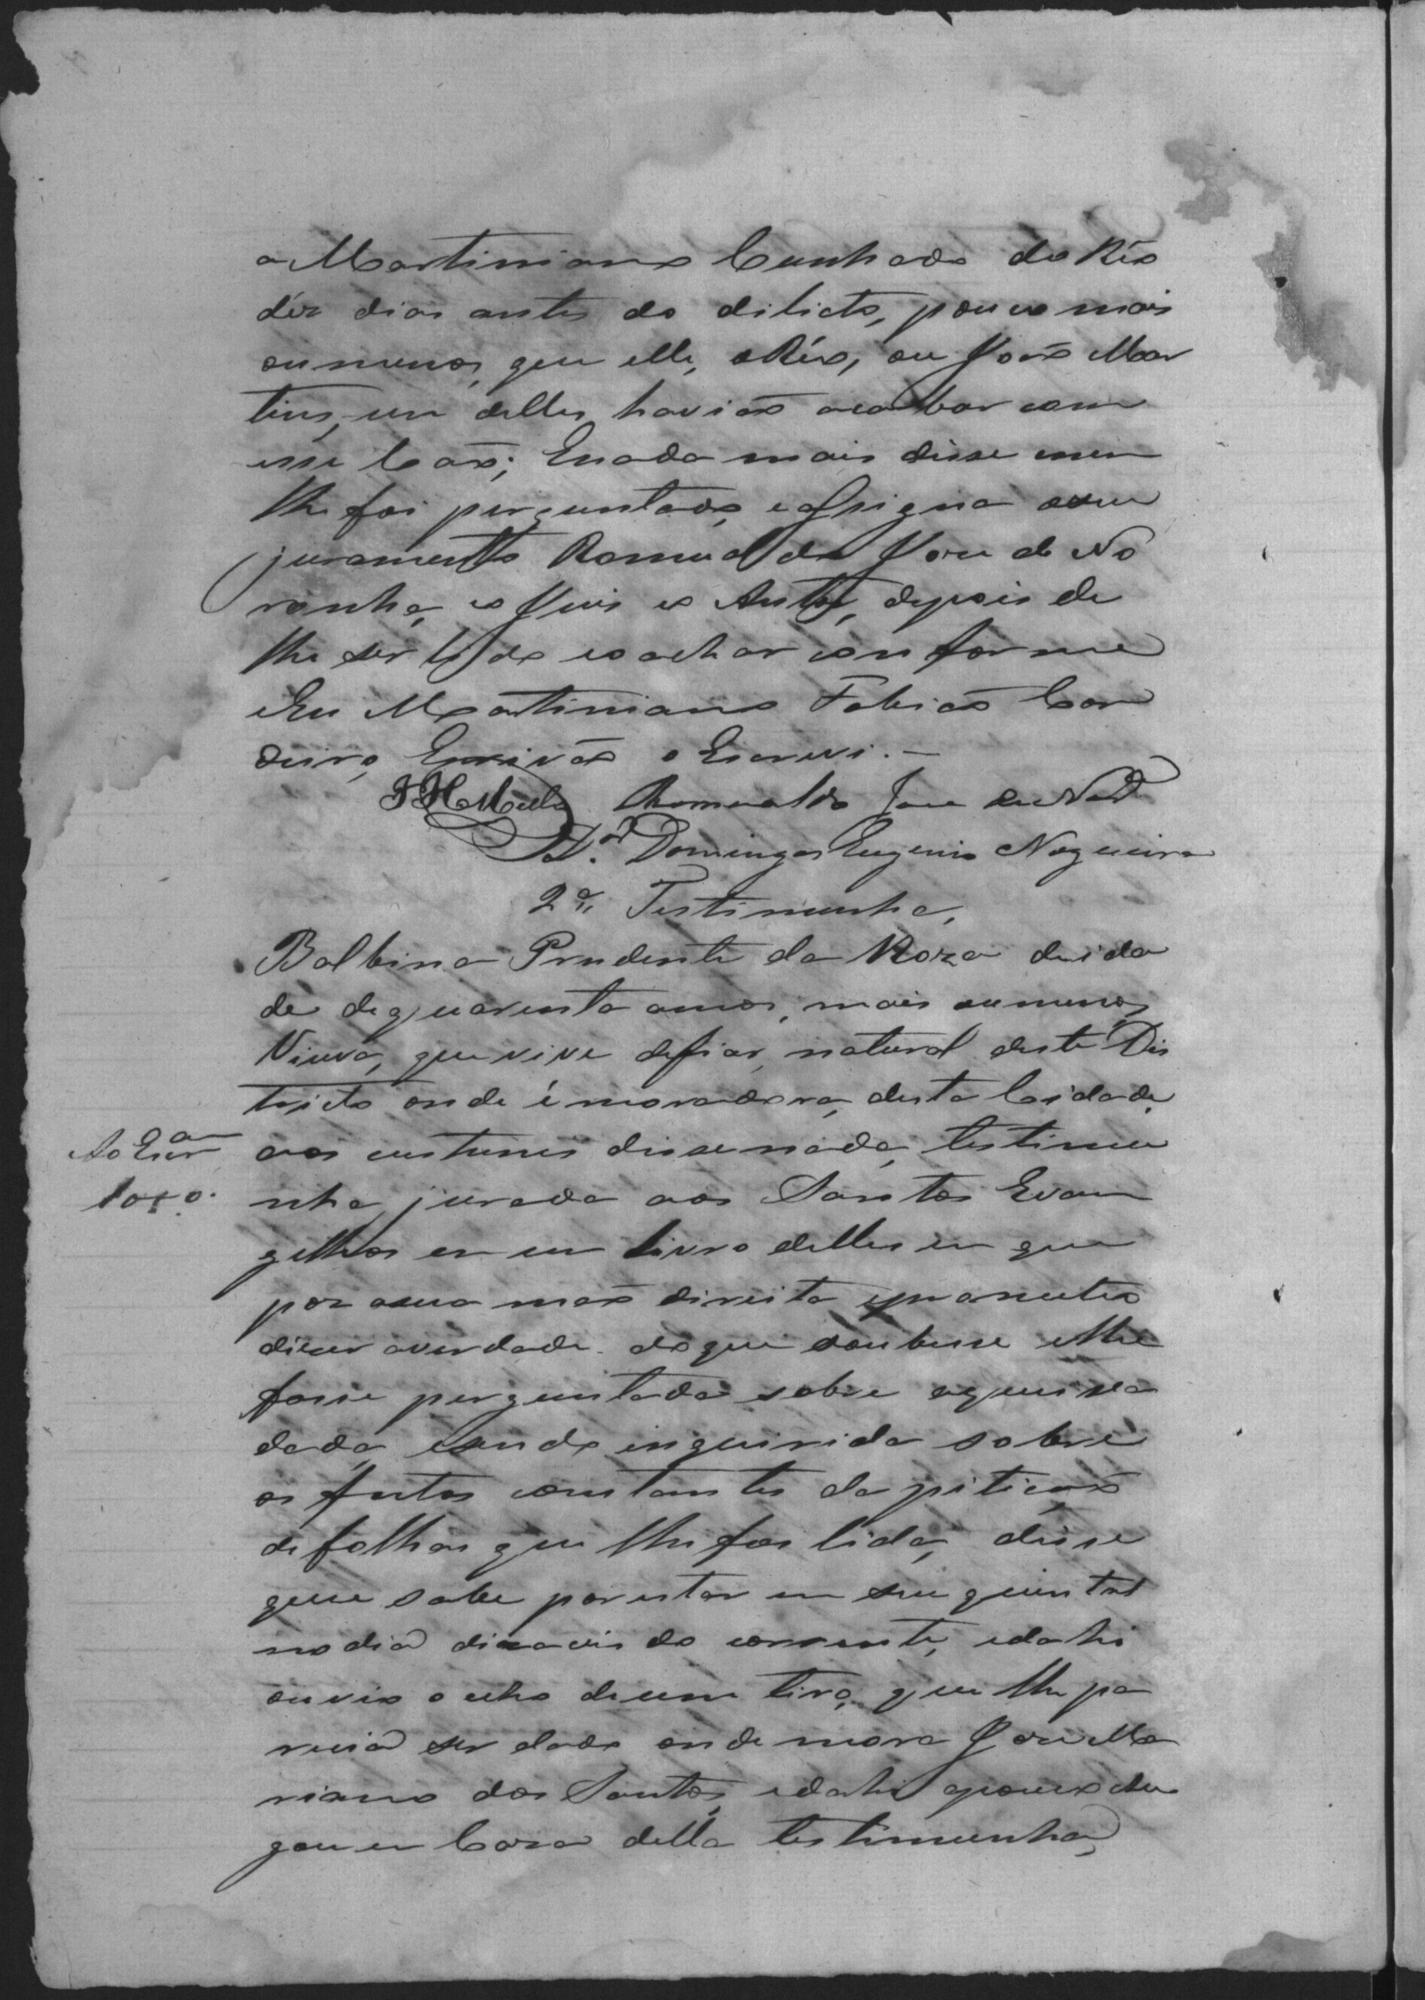 a Martiniano Cunhado do Réo
déz dias antes do dilicto, pouco mais
ou menos, que elle, o Réo, ou João Mar
tins, um delles havião acabar com
esse Cão; Enada mais disse nem
lhe foi perguntado, e assigna o seu
juramento Romualdo Jose de No
ronha, o Juis e o Autor, depois de
lhe ser lido e o achar conforme
Eu Martiniano Fabião Cor
deiro, Escrivão o Escrevi. —
Romualdo Jose de
D.or Domingos Eugenio Nogueira
2ª Testimunha,
Balbina Prudente da Roza de ida
de de quarenta annos, mais ou menos,
Viuva, que vive de fiar, natural deste Dis
tricto onde é moradora, desta Cidade,
aos custumes disse nada, testimu
nha jurada aos Santos Evan
gelhos em um livro delles em que
poz a sua mão direita e prometeo
dizer a verdade do que soubesse e lhe
fosse perguntada sobre a queixa
dada, e sendo inquirida sobre
os factos constantes da pitição
de folhas que lhe foi lida, disse
que sabe por estar em seu quintal
no dia dizaceis do corrente, e dahi
ouvio o echo de um tiro, que lhe pa
recia ser dado onde mora Jose Ma
riano dos Santos, e dahi apouco che
gou em Caza della testimunha,